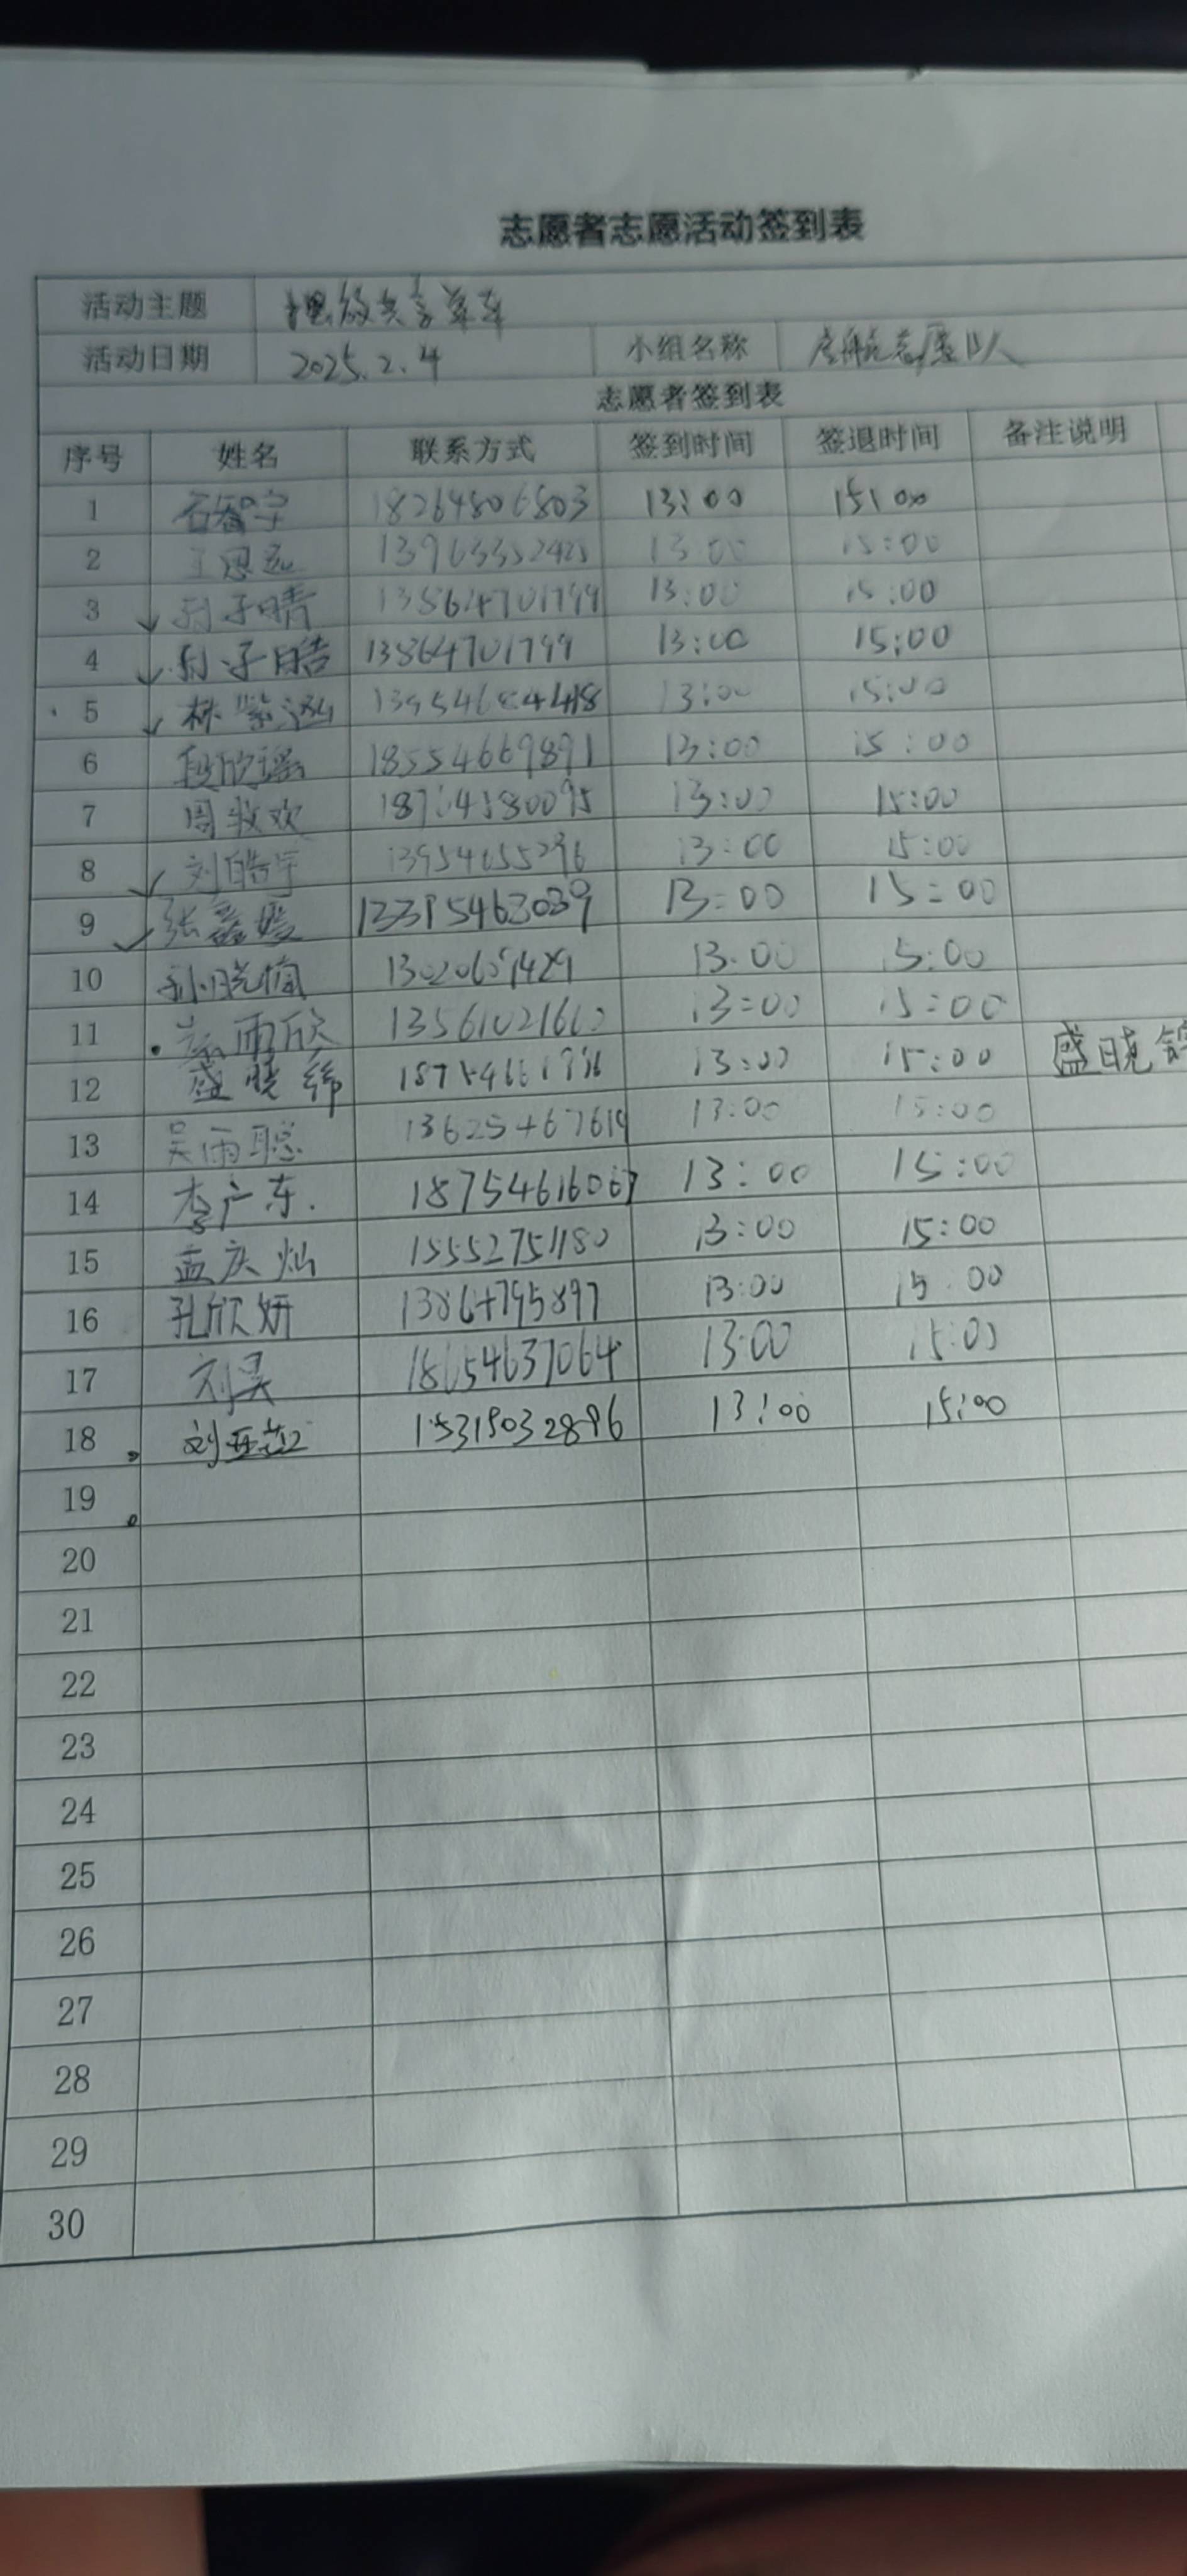 志愿者志愿活动签到表
活动主题 摆放共享单车
活动日期 2025.2.4 小组名称
志愿者签到表
序号 姓名 联系方式 签到时间 签退时间 备注说明
1 石智宇 18264806803 13:00 15:00
2 王思远 13:00 15:00
3 孙子晴 13:00 15:00
4 孙子皓 13864701799 13:00 15:00
5 林紫泓 13:00 15:00
6 段欣瑶 18554669891 13:00 15:00
7 周牧欢 13:00 15:00
8 刘皓宇 13954655296 13:00 15:00
9 张鑫媛 13:00 15:00
10 13:00 15:00
11 雨欣 13:00 15:00
12 盛晓 13:00 15:00 盛晓
13 吴雨聪 13625467619 13:00 15:00
14 李广东. 18754616067 13:00 15:00
15 孟庆灿 15552751180 13:00 15:00
16 孔欣妍 13864795897 13:00 15:00
17 刘昊 18654637064 13:00 15:00
18 刘亚茹 15319032896 13:00 15:00
19
20
21
22
23
24
25
26
27
28
29
30